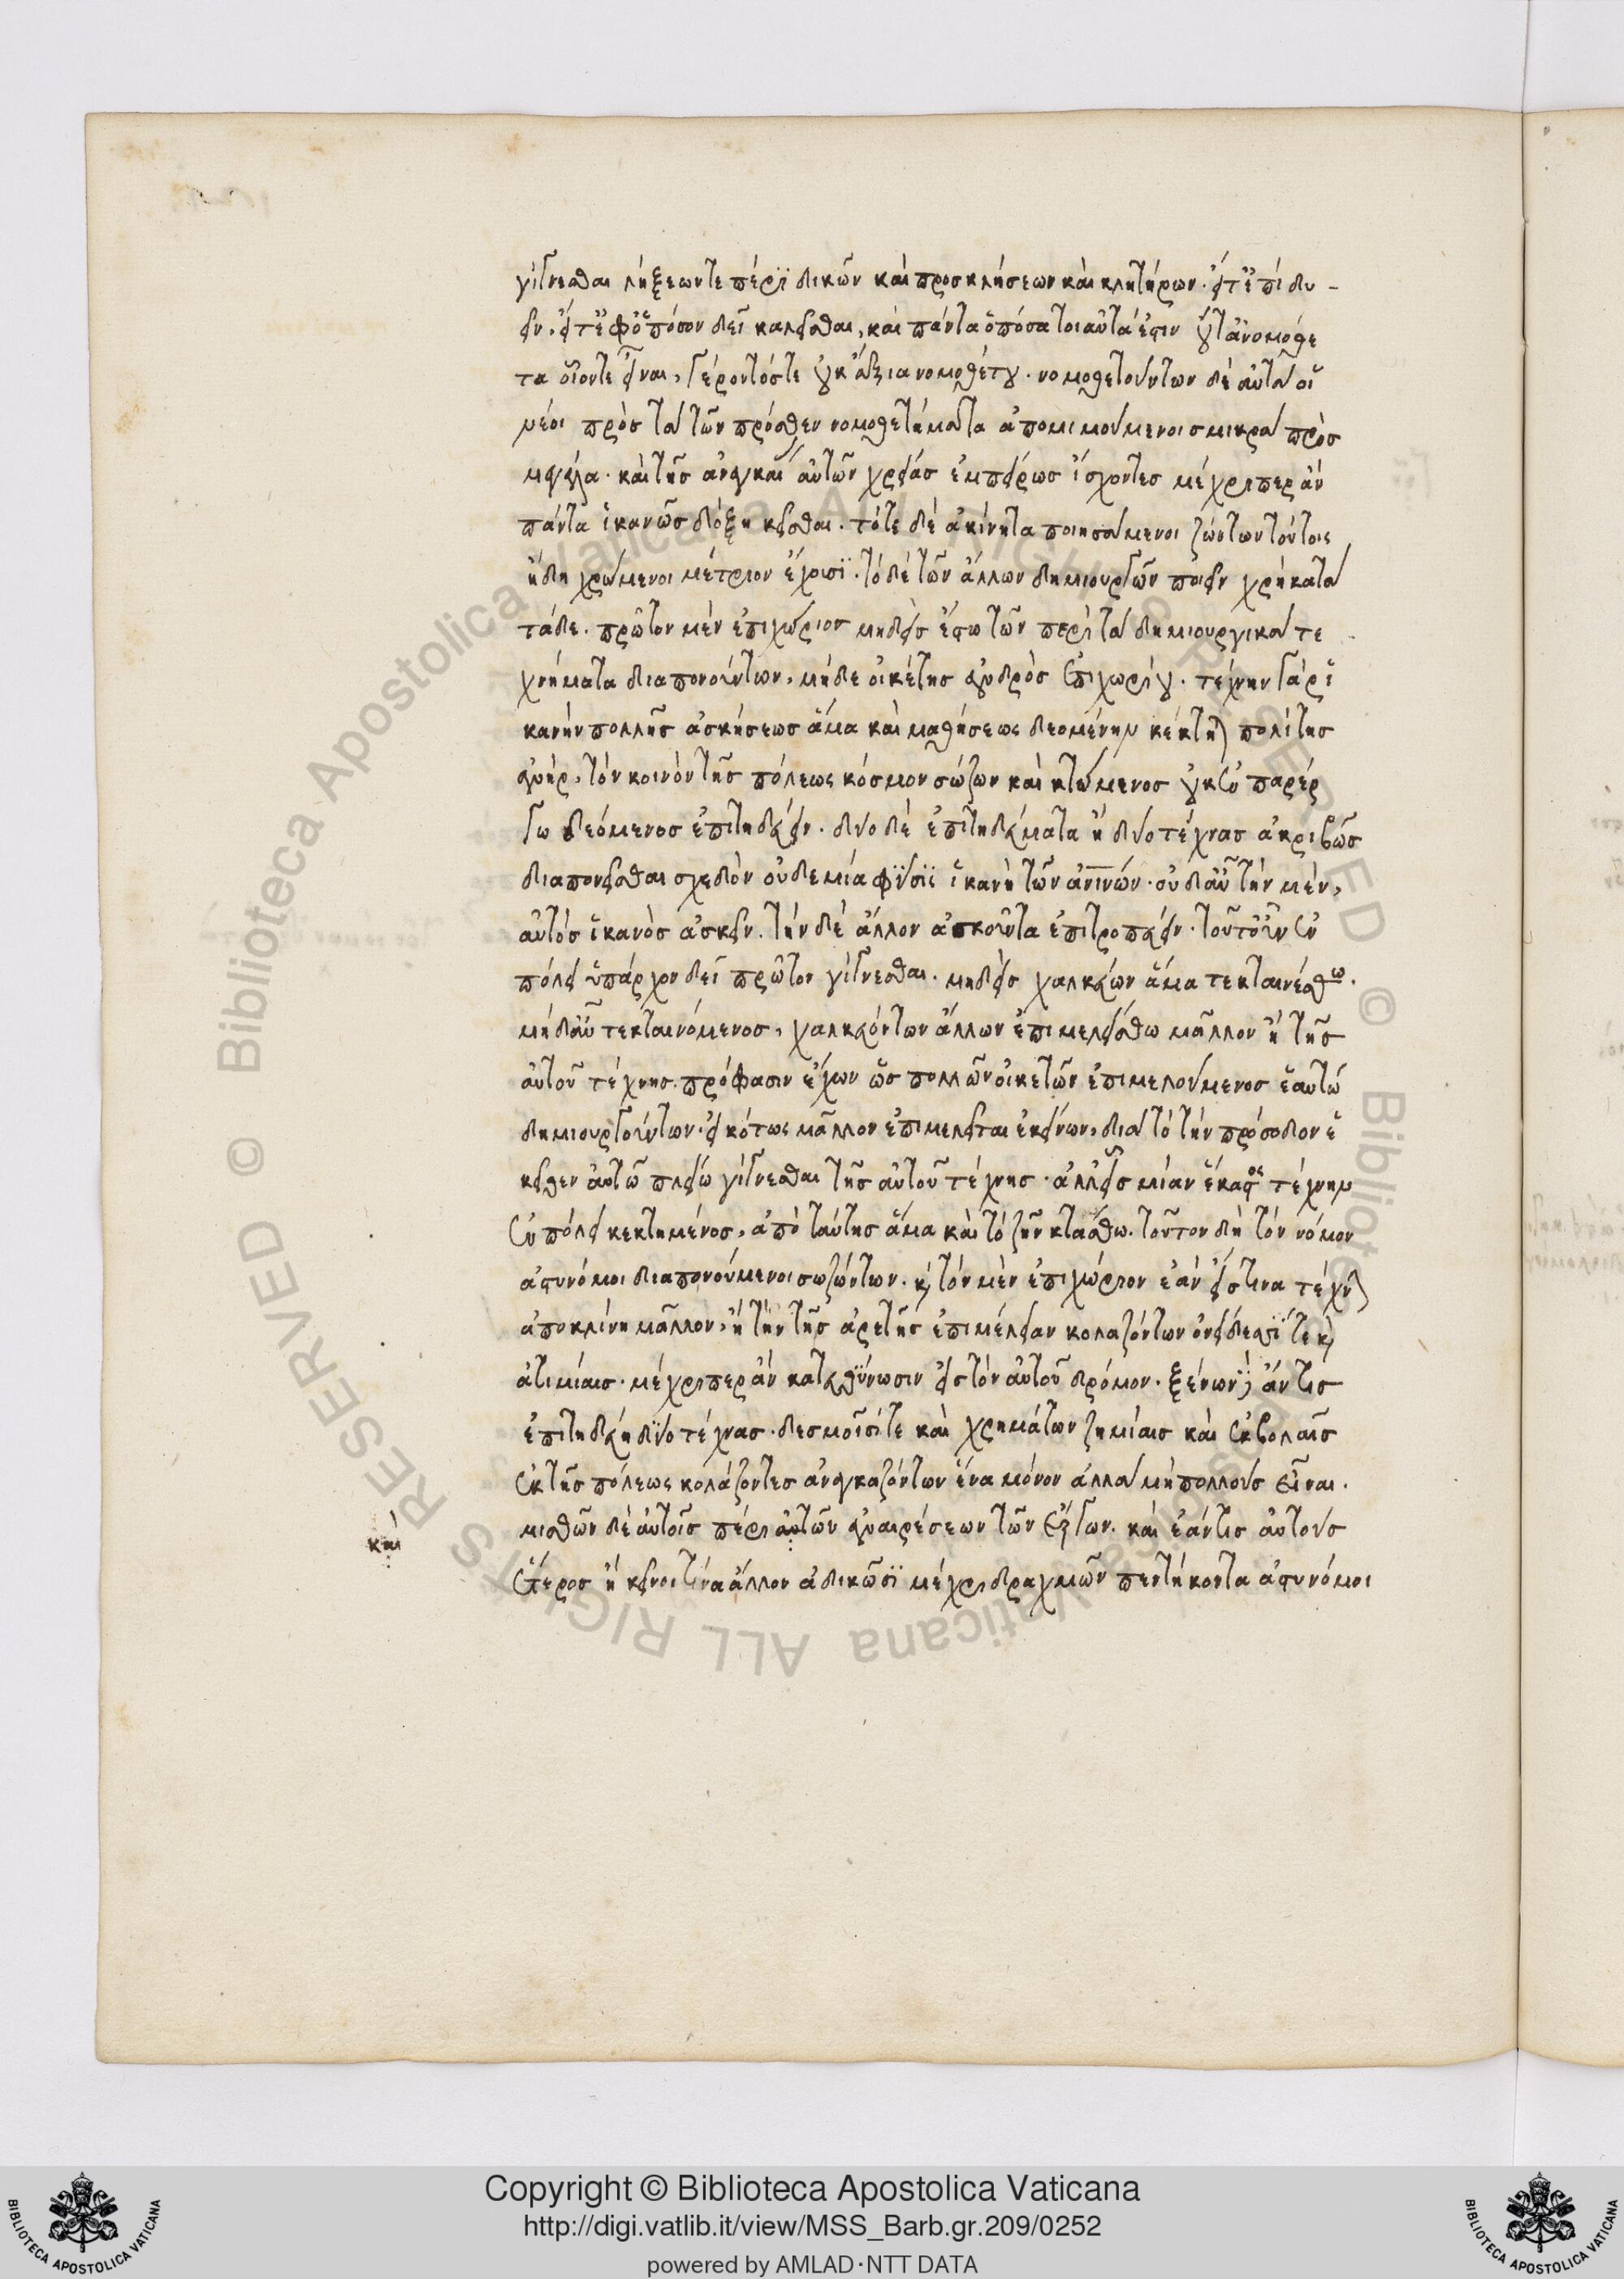 γίγνεσθαι λήξεών τε πέρϊ δικῶν καὶ προσκλήσεων καὶ κλητήρων. εἴτ' ἐπὶ δυ-
εῖν, εἴτ' ἐφ' ὁπόσον δεῖ καλεῖσθαι, καὶ πάντα ὁπόσα τοιαῦτά ἐστιν οὔτ' ἀνομοθέ
τα οἷόντε εἶναι, γέροντόστε οὐκ ἄξια νομοθέτου. νομοθετούντων δὲ αὐτὰ οἱ
νέοι πρὸς τὰ τῶν πρόσθεν νομοθετήματα ἀπομιμούμενοι σμικρὰ πρὸς
μεγάλα. καὶ τῆς ἀναγκαί αὐτῶν χρείας ἐμπείρως ἴσχοντες μέχριπερ ἂν
πάντα ἱκανῶς δόξη κεῖσθαι. τότε δὲ ἀκίνητα ποιησάμενοι ζώντων τούτοις
ἤδη χρώμενοι μέτριον ἔχουσϊ. τὸ δὲ τῶν ἄλλων δημιουργῶν ποιεῖν χρὴ κατὰ
τάδε. πρῶτον μὲν ἐπιχώριος μηδεὶς ἔστω τῶν περὶ τὰ δημιουργικὰ τε
χνήματα διαπονούντων, μήδε οἰκέτης ἀνδρὸς ἐπιχωρίου. τέχνην γὰρ ἱ
κανὴν πολλῆς ἀσκήσεως ἅμα καὶ μαθήσεως δεομένην κέκτηται πολίτης
ἀνήρ, τὸν κοινὸν τῆς πόλεως κόσμον σώζων καὶ κτώμενος οὐκ ἐν παρέρ
γω δεόμενος ἐπιτηδεύειν. δύο δὲ ἐπιτηδεύματα ἢ δύο τέχνας ἀκριβῶς
διαπονεῖσθαι σχεδὸν οὐδεμία φύσις ἱκανὴ τῶν ἀνίνων. οὐδ' αὖ τὴν μὲν,
αὐτὸς ἱκανὸς ἀσκεῖν. τὴν δὲ ἄλλον ἀσκοῦντα ἐπιτροπεύειν. τοῦτ' οὖν ἐν
πόλει ὑπάρχον δεῖ πρῶτον γίγνεσθαι. μηδεὶς χαλκεύων ἅμα τεκταινέσθω.
μήδ' αὖ τεκταινόμενος, χαλκευόντων ἄλλων ἐπιμελείσθω μᾶλλον ἢ τῆς
αὑτοῦ τέχνης. πρόφασιν ἔχων ὡς πολλῶν οἰκετῶν ἐπιμελούμενος ἑαυτῶ
δημιουργούντων. εἰκότως μᾶλλον ἐπιμελεῖται ἐκείνων, διὰ τὸ τὴν πρόσοδον ἐ
κεῖθεν αὐτῶ πλείω γίγνεσθαι τῆς αὑτοῦ τέχνης. ἀλλ' εἷς μίαν ἕκαστος τέχνην
ἐν πόλει κεκτημένος, ἀπὸ ταύτης ἅμα καὶ τὸ ζῆν κτάσθω. τοῦτον δὴ τὸν νόμον
ἀστυνόμοι διαπονούμενοι σωζόντων. κ τὸν μὲν ἐπιχώριον ἐὰν εἴς τινα τέχνην
ἀποκλίνη μᾶλλον, ἢ τὴν τῆς ἀρετῆς ἐπιμέλειαν κολαζόντων ὀνείδεσϊ τε κ
ἀτιμίαις. μέχριπερ ἂν κατευθύνωσιν εἰς τὸν αὑτοῦ δρόμον. ξένων δὲ ἄν τις
ἐπιτηδεύη δύο τέχνας. δεσμοῖσίτε καὶ χρημάτων ζημίαις καὶ ἐκβολαῖς
ἐκ τῆς πόλεως κολάζοντες ἀναγκαζόντων ἕνα μόνον ἀλλὰ μὴ πολλοὺς εἶναι.
μισθῶν δὲ αὐτοῖς πέρι αὐτῶν ἀναιρέσεων τῶν ἔργων. καὶ ἐάν τις αὐτοὺς
καὶ
ἕτερος ἢ κεῖνοι τίνα ἄλλον ἀδικῶσϊ μέχρι δραχμῶν πεντήκοντα ἀστυνόμοι
Copyright © Biblioteca Apostolica Vaticana
http://digi.vatlib.it/view/MSS_Barb.gr.209/0252
powered by AMLAD·NTT DATA
BIBLIOTECA APOSTOLICA VATICANA
BIBLIOTECA APOSTOLICA VATICANA
© Biblioteca Apostolica Vaticana ALL RIGHTS RESERVED © Biblioteca Apostolica Vaticana ALL RIGHTS RESERVED